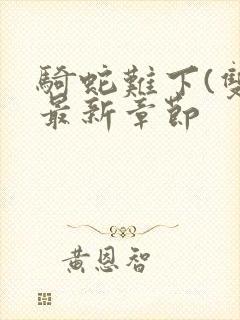 騎蛇難下(雙
最新章節
黃恩智